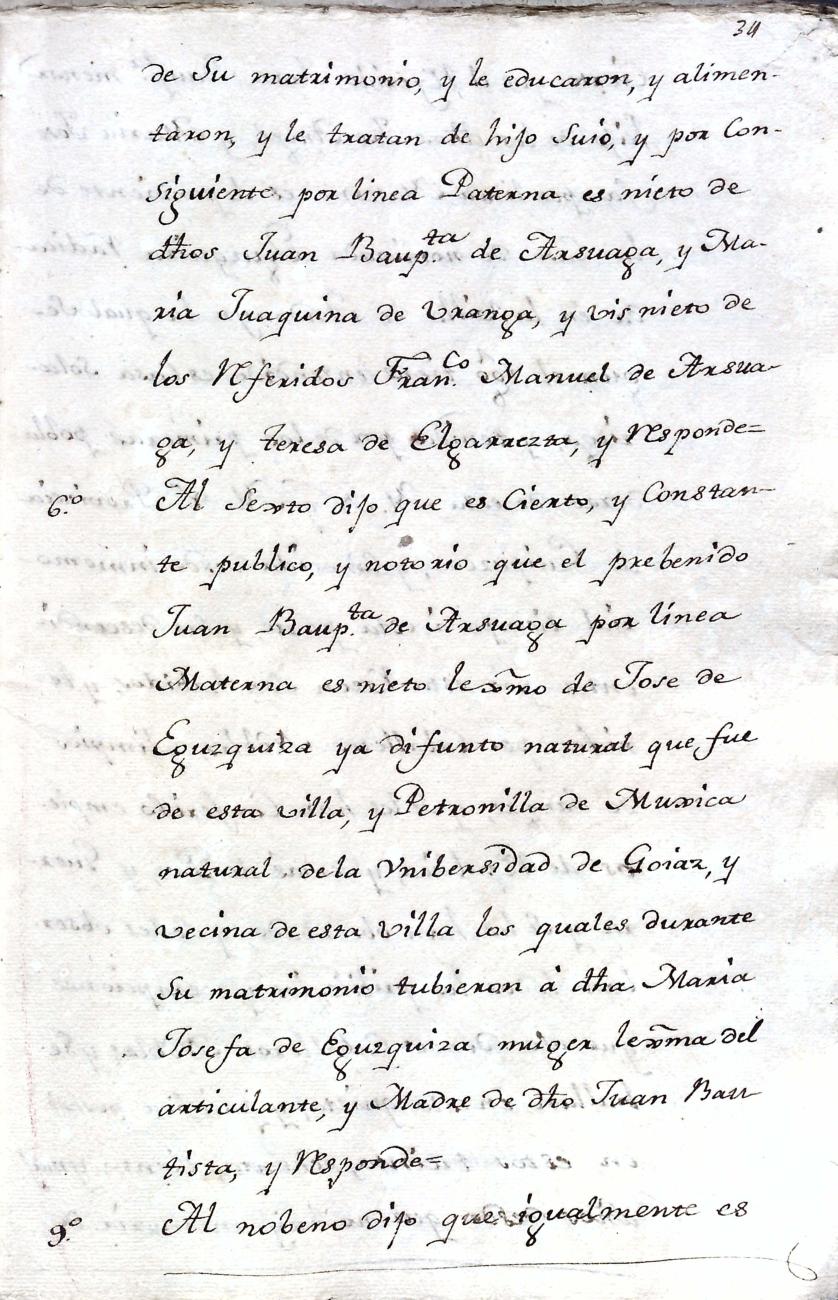 34
de Su matrimonio, y le educaron, y alimen-
taron, y le tratan de hijo Suio, y por Con-
siguiente por linea Paterna es nieto de
dhos Juan Baup.ta de Arsuaga, y Ma-
ria Juaquina de Vranga, y visnieto de
los Rferidos Fran.co Manuel de Arsua-
ga, y Teresa de Elgarrezta, y Rsponde=
6.o Al Sexto dijo que es Cierto, y Constan-
te publico, y notorio que el prebenido
Juan Baup.ta de Arsuaga por línea
Materna es nieto lexmo de Jose de
Eguzquiza ya difunto natural que fue
de esta villa, y Petronilla de Muxica
natural de la Vnibersidad de Goiaz, y
vecina de esta villa los quales durante
Su matrimonio tubieron à dha Maria
Josefa de Eguzquiza muger lexma del
articulante, y Madre de dho Juan Bau
tista, y Rsponde=
9.o Al nobeno dijo que igualmente es